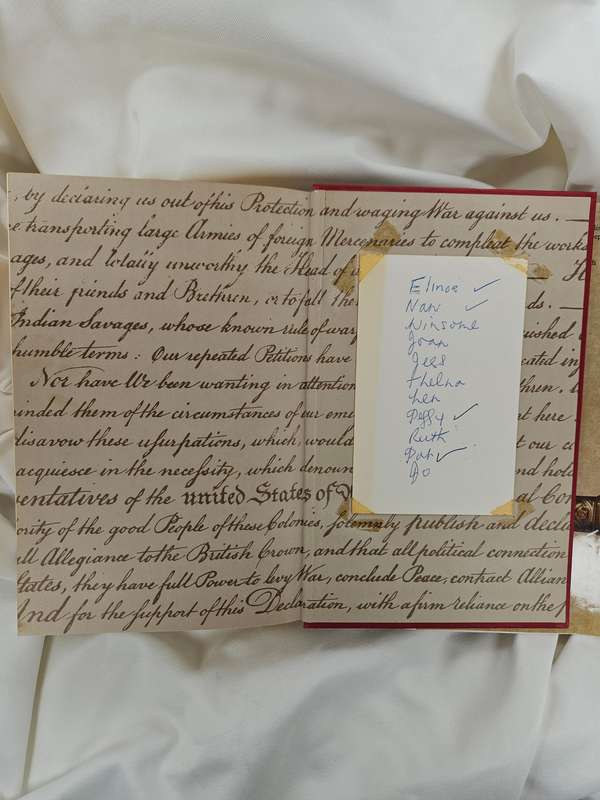 , by declaring us out of his Protection and waging War against us. —
transporting large Armies of foreign Mercenaries to compleat the works
ages, and totally unworthy the Head of
of their friends and Brethren, or to fall the ds. —
Indian Savages, whose known rule of warf
humble terms: Our repeated Petitions have
Nor have We been wanting in attention thren.
inded them of the circumstances of our emi here.
disavow these usurpations, which, would our co
acquiesce in the necessity, which denoun and hold
entatives of the united States of al Con
ority of the good People of these Colonies, solemnly publish and decla
all Allegiance to the British Crown, and that all political connection
States, they have full Power to levy War, conclude Peace, contract Allian
And for the support of this Declaration, with a firm reliance on the p
Elinor ✓
Nan ✓
Winsome
Joan
Jess
Thelma
Len
Peggy ✓
Ruth
Pat ✓